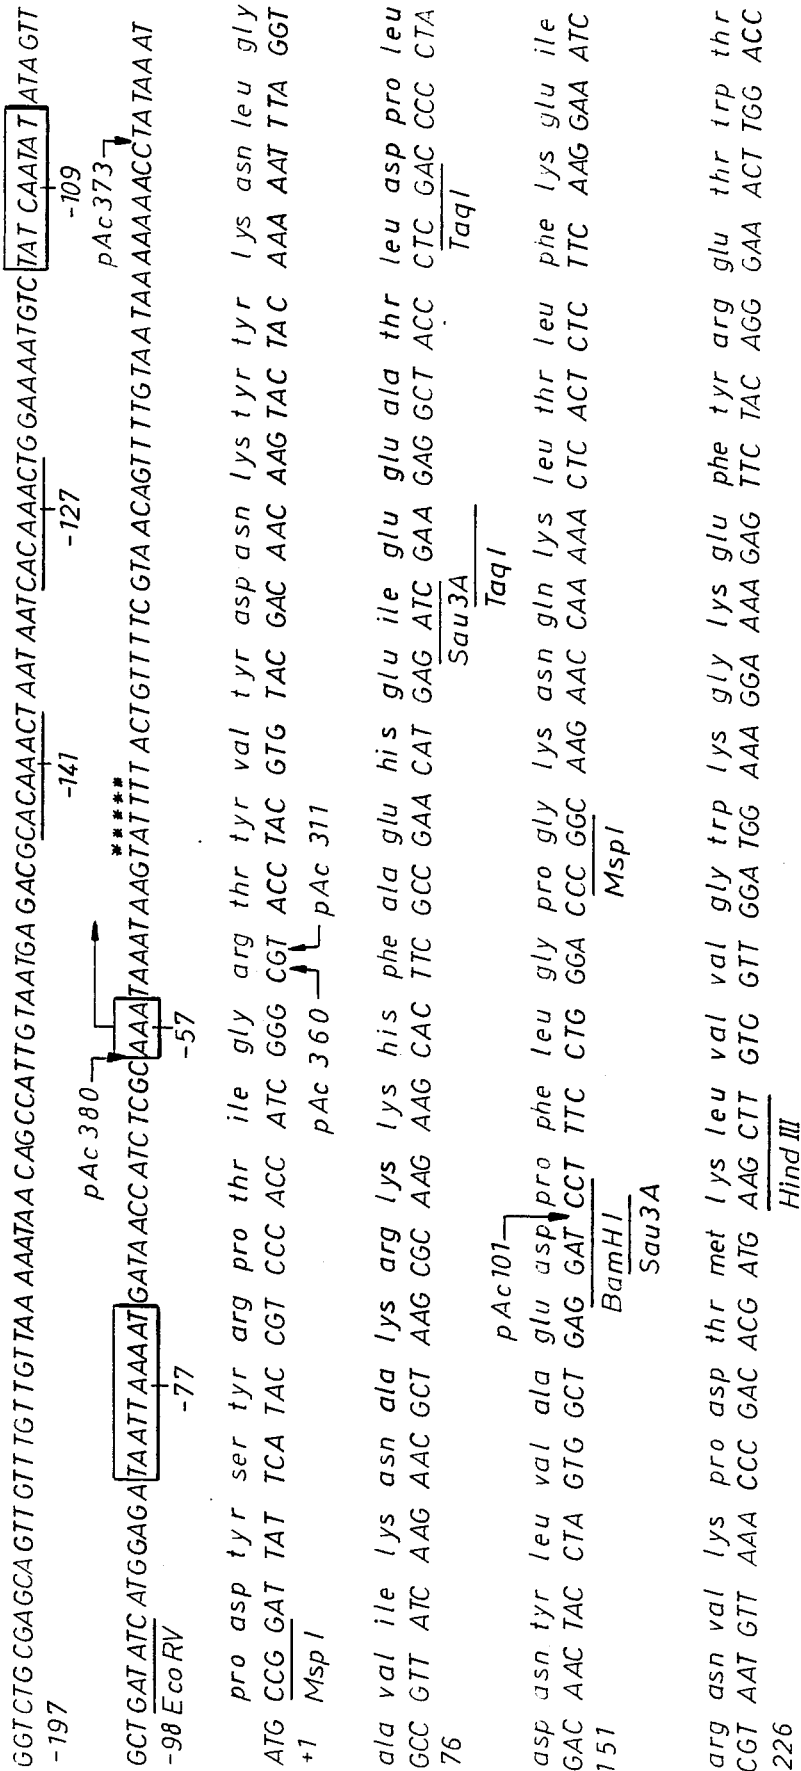 GGTCTGCGAGCAGTTGTTTGTTGTTAAAAATAACAGCCATTGTAATGAGACGCACAAACTAATAATCACAAACTGGAAAATGTCTATCAATATATAGTT
-197 -141 -127 -109
pAc380 ***** pAc373
GCTGATATCATGGAGATAATTAAAATGATAACCATCTCGCAAATAAATAAGTATTTTACTGTTTTCGTAACAGTTTTGTAATAAAAAAACCTATAAAT
-98 EcoRV -77 -57
pro asp tyr ser tyr arg pro thr ile gly arg thr tyr val tyr asp asn lys tyr tyr lys asn leu gly
ATG CCG GAT TAT TCA TAC CGT CCC ACC ATC GGG CGT ACC TAC GTG TAC GAC AAC AAG TAC TAC AAA AAT TTA GGT
+1 MspI pAc 360 pAc 311
ala val ile lys asn ala lys arg lys lys his phe ala glu his glu ile glu glu ala thr leu asp pro leu
GCC GTT ATC AAG AAC GCT AAG CGC AAG AAG CAC TTC GCC GAA CAT GAG ATC GAA GAG GCT ACC CTC GAC CCC CTA
76 Sau3A TaqI
TaqI
pAc101
asp asn tyr leu val ala glu asp pro phe leu gly pro gly lys asn gln lys leu thr leu phe lys glu ile
GAC AAC TAC CTA GTG GCT GAG GAT CCT TTC CTG GGA CCC GGC AAG AAC CAA AAA CTC ACT CTC TTC AAG GAA ATC
151 BamHI MspI
Sau3A
arg asn val lys pro asp thr met lys leu val val gly trp lys gly lys glu phe tyr arg glu thr trp thr
CGT AAT GTT AAA CCC GAC ACG ATG AAG CTT GTC GTT GGA TGG AAA GGA AAA GAG TTC TAC AGG GAA ACT TGG ACC
226 Hind III